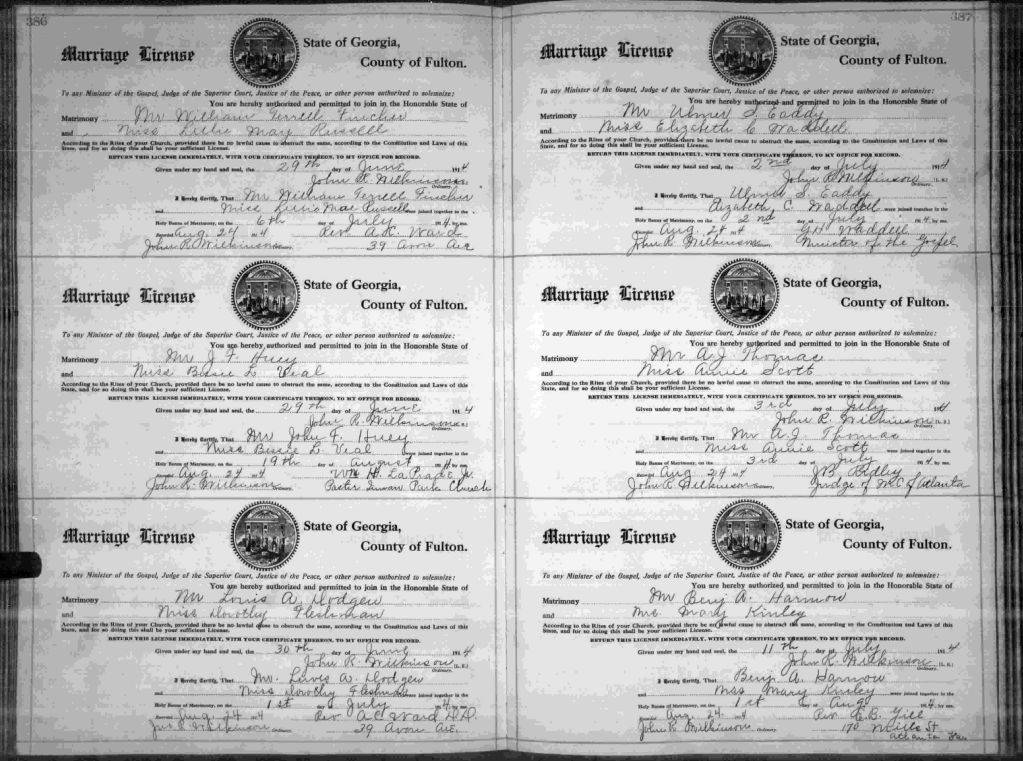 386
Marriage License
State of Georgia,
County of Fulton.
To any Minister of the Gospel, Judge of the Superior Court, Justice of the Peace, or other person authorized to solemnize:
You are hereby authorized and permitted to join in the Honorable State of
Matrimony Mr William Terrell Fincher
and Miss Lillie May Russell
According to the Rites of your Church, provided there be no lawful cause to obstruct the same, according to the Constitution and Laws of this
State, and for so doing this shall be your sufficient License.
RETURN THIS LICENSE IMMEDIATELY, WITH YOUR CERTIFICATE THEREON, TO MY OFFICE FOR RECORD.
Given under my hand and seal, the 29th day of June 1914
John R. Wilkinson
Ordinary.
I Hereby Certify, That Mr William Terrell Fincher
and Miss Lillie Mae Russell were joined together in the
Holy Banns of Matrimony, on the 6th day of July 1914, by me.
Recorded Aug. 24 1914 Rev. A.C. Ward
John R. Wilkinson Ordinary. 39 Avon Ave
Marriage License
State of Georgia,
County of Fulton.
To any Minister of the Gospel, Judge of the Superior Court, Justice of the Peace, or other person authorized to solemnize:
You are hereby authorized and permitted to join in the Honorable State of
Matrimony Mr J. F. Huey
and Miss Bessie L. Veal
According to the Rites of your Church, provided there be no lawful cause to obstruct the same, according to the Constitution and Laws of this
State, and for so doing this shall be your sufficient License.
RETURN THIS LICENSE IMMEDIATELY, WITH YOUR CERTIFICATE THEREON, TO MY OFFICE FOR RECORD.
Given under my hand and seal, the 29th day of June 1914
John R. Wilkinson
Ordinary.
I Hereby Certify, That Mr John F. Huey
and Miss Bessie L. Veal were joined together in the
Holy Banns of Matrimony, on the 19th day of August 1914 by me.
Recorded Aug. 24 1914 Wm H.
John R. Wilkinson Ordinary. Pastor Inman Park Church
Marriage License
State of Georgia,
County of Fulton.
To any Minister of the Gospel, Judge of the Superior Court, Justice of the Peace, or other person authorized to solemnize:
You are hereby authorized and permitted to join in the Honorable State of
Matrimony Mr Louis A. Hodgen
and Miss Dorothy Fleshman
According to the Rites of your Church, provided there be no lawful cause to obstruct the same, according to the Constitution and Laws of this
State, and for so doing this shall be your sufficient License.
RETURN THIS LICENSE IMMEDIATELY, WITH YOUR CERTIFICATE THEREON, TO MY OFFICE FOR RECORD.
Given under my hand and seal, the 30th day of June 1914
John R. Wilkinson (L. S.)
Ordinary.
I Hereby Certify, That Mr. Lewis A. Hodgen
and Miss Dorothy Fleshman were joined together in the
Holy Banns of Matrimony, on the 1st day of July 1914, by me.
Recorded Aug. 24 1914 Rev. A.C. Ward D.D.
Jno R. Wilkinson Ordinary. 39 Avon Ave.
387
Marriage License
State of Georgia,
County of Fulton.
To any Minister of the Gospel, Judge of the Superior Court, Justice of the Peace, or other person authorized to solemnize:
You are hereby authorized and permitted to join in the Honorable State of
Matrimony Mr Ulmer S. Eaddy
and Miss Elizabeth C Waddell
According to the Rites of your Church, provided there be no lawful cause to obstruct the same, according to the Constitution and Laws of this
State, and for so doing this shall be your sufficient License.
RETURN THIS LICENSE IMMEDIATELY, WITH YOUR CERTIFICATE THEREON, TO MY OFFICE FOR RECORD.
Given under my hand and seal, the 2nd day of July 1914
John R. Wilkinson (L. S.)
Ordinary.
I Hereby Certify, That Ulmer S. Eaddy
and Elizabeth C. Waddell were joined together in the
Holy Banns of Matrimony, on the 2nd day of July 1914 by me.
Recorded Aug. 24 1914 G.H. Waddell
John R. Wilkinson Ordinary. Minister of the Gospel
Marriage License
State of Georgia,
County of Fulton.
To any Minister of the Gospel, Judge of the Superior Court, Justice of the Peace, or other person authorized to solemnize:
You are hereby authorized and permitted to join in the Honorable State of
Matrimony Mr A.J. Thomas
and Miss Annie Scott
According to the Rites of your Church, provided there be no lawful cause to obstruct the same, according to the Constitution and Laws of this
State, and for so doing this shall be your sufficient License.
RETURN THIS LICENSE IMMEDIATELY, WITH YOUR CERTIFICATE THEREON, TO MY OFFICE FOR RECORD.
Given under my hand and seal, the 3rd day of July 1914
John R. Wilkinson (L. S.)
Ordinary.
I Hereby Certify, That Mr A.J. Thomas
and Miss Annie Scott were joined together in the
Holy Banns of Matrimony, on the 3rd day of July 1914, by me.
Recorded Aug. 24 1914 J.B. Ridley
John R. Wilkinson Ordinary. Judge of M.C. of Atlanta
Marriage License
State of Georgia,
County of Fulton.
To any Minister of the Gospel, Judge of the Superior Court, Justice of the Peace, or other person authorized to solemnize:
You are hereby authorized and permitted to join in the Honorable State of
Matrimony Mr Benj A. Harmow
and Mrs. Mary Kinley
According to the Rites of your Church, provided there be no lawful cause to obstruct the same, according to the Constitution and Laws of this
State, and for so doing this shall be your sufficient License.
RETURN THIS LICENSE IMMEDIATELY, WITH YOUR CERTIFICATE THEREON, TO MY OFFICE FOR RECORD.
Given under my hand and seal, the 11th day of July 1914
John R. Wilkinson (L. S.)
Ordinary.
I Hereby Certify, That Benj A. Harmow
and Miss Mary Kinley were joined together in the
Holy Banns of Matrimony, on the 1st day of Aug 1914, by me.
Recorded Aug. 24 1914 Rev. C.B. Gill
John R. Wilkinson Ordinary. 170 Mills St
Atlanta Ga